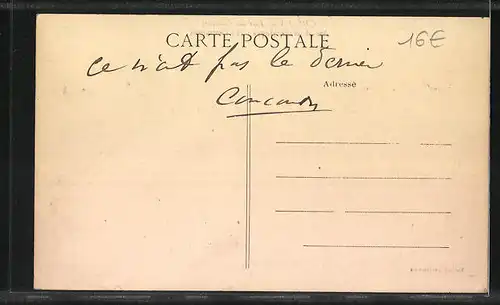 CARTE POSTALE
16€
ce n'est pas le dernier
Adresse